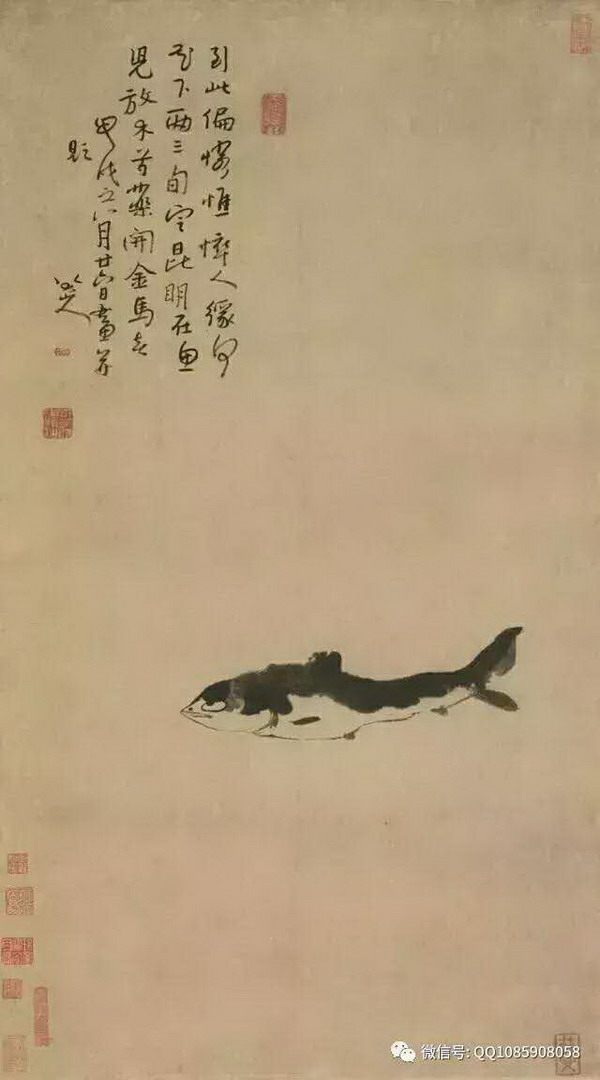 到此偏憐憔悴人緣何
花下兩三旬定昆明在魚
兒放木芍藥開金馬春
甲戌之八月廿六日畫并
題
八大山人
微信号: QQ1085908058